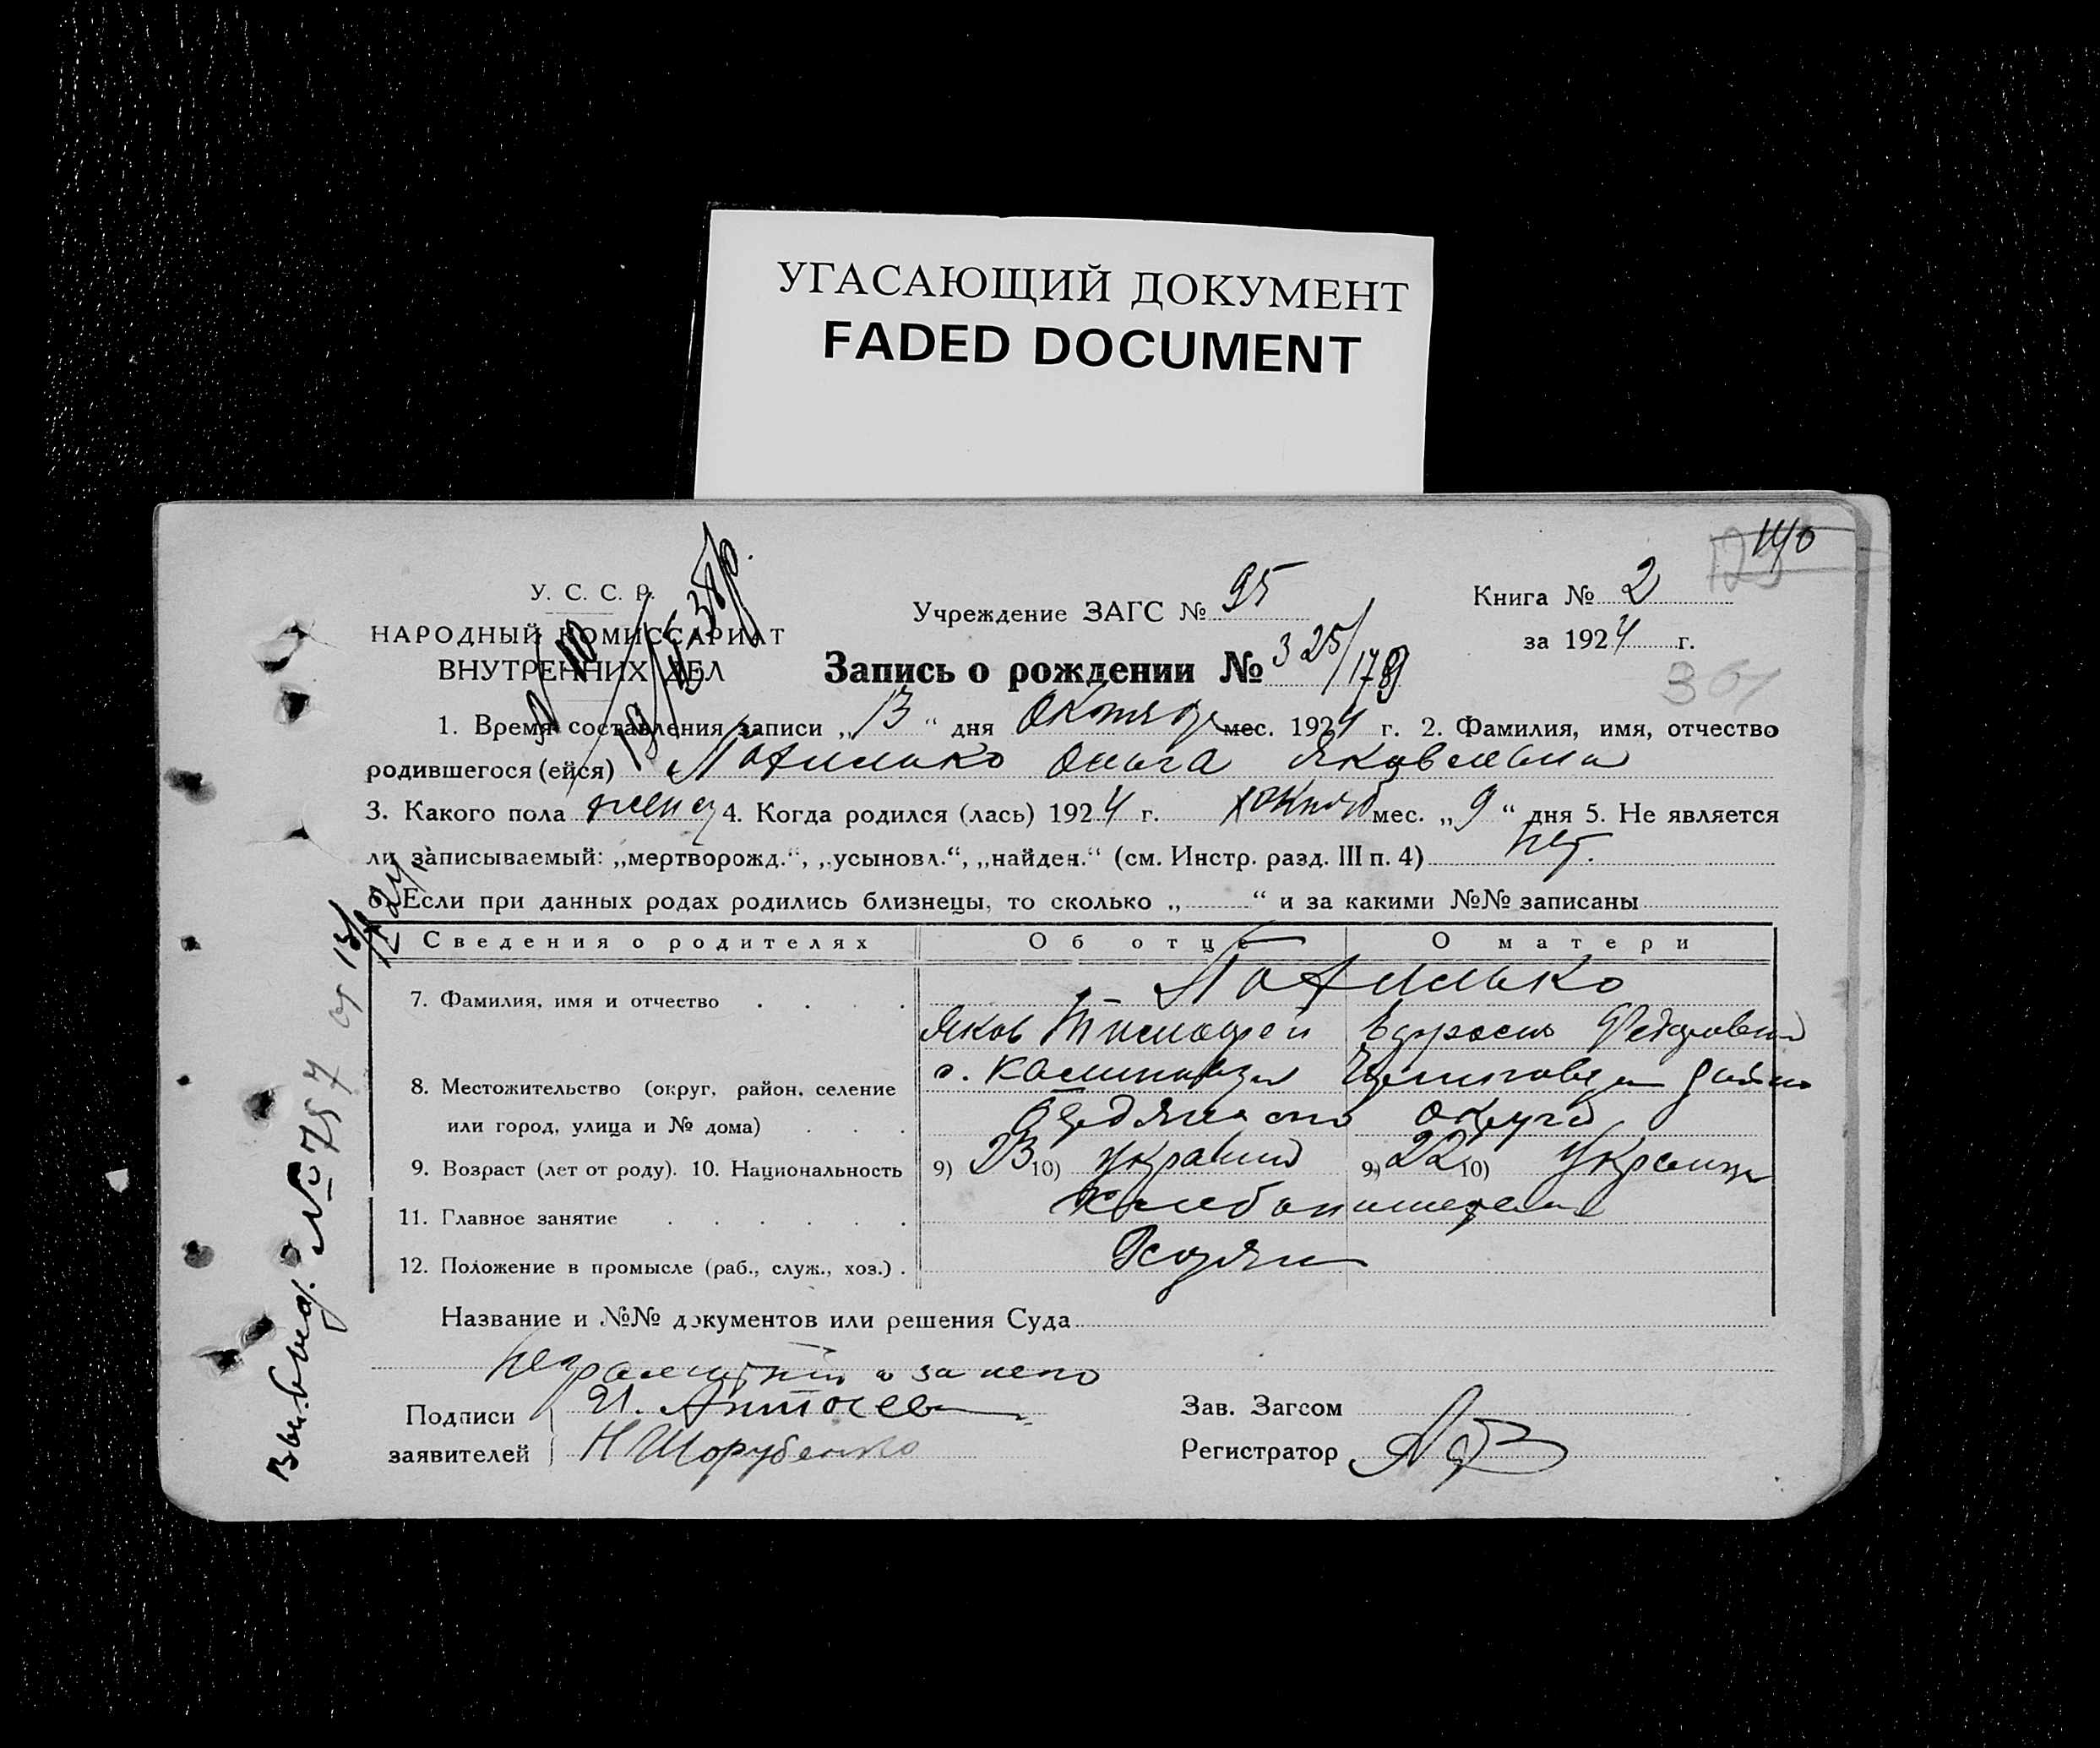 УГАСАЮЩИЙ ДОКУМЕНТ
FADED DOCUMENT
140
У. С. С. Р.
НАРОДНЫЙ КОМИССАРИАТ
ВНУТРЕННИХ ДЕЛ
Учреждение ЗАГС № 95
Книга № 2
за 1924 г.
Запись о рождении № 325/178
361
1. Время составления записи „13“ дня Октября мес. 1924 г. 2. Фамилия, имя, отчество
родившегося (ейся) Ольга Яковлевна
3. Какого пола женск 4. Когда родился (лась) 1924 г. октяб мес. „9“ дня 5. Не является
ли записываемый: „мертворожд.“, „усыновл.“, „найден.“ (см. Инстр. разд. III п. 4) нет.
6. Если при данных родах родились близнецы, то сколько „ “ и за какими №№ записаны
Сведения о родителях Об отце О матери
7. Фамилия, имя и отчество
Яков Тимофей
8. Местожительство (округ, район, селение
или город, улица и № дома) округа
9. Возраст (лет от роду). 10. Национальность 9) 23 10) украин 9) 22 10) Украин
11. Главное занятие
12. Положение в промысле (раб., служ., хоз.) Хозяин
Название и №№ документов или решения Суда
неграмотный а за него
Подписи И.
заявителей Н Шорубенко
Зав. Загсом
Регистратор
№ 757 от 13/X 24